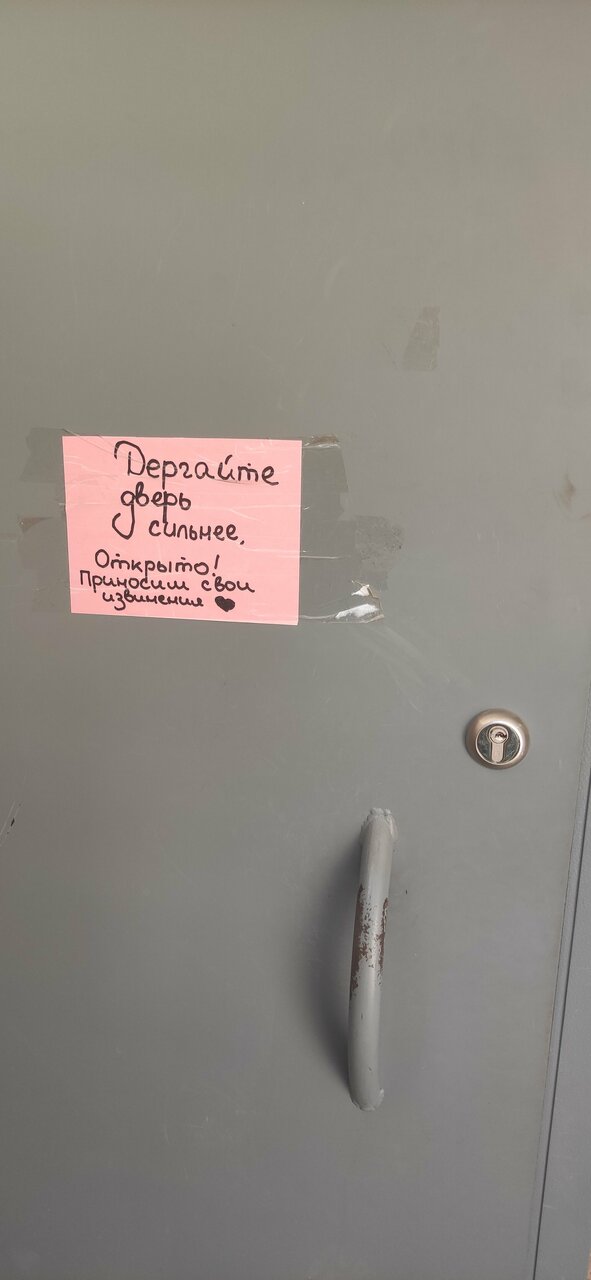 Дергайте
дверь
сильнее.
Открыто!
Приносим свои
извинения ♥